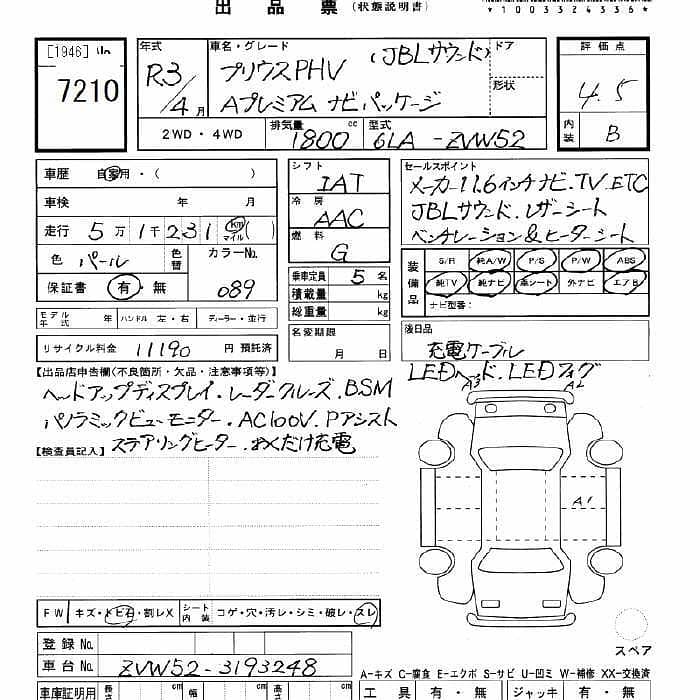 出品票 (状態説明書)
*1003324336*
[1946] Un
7210
年式
R.3/4 月
車名・グレード
プリウスPHV (JBLサウンド)
Aプレミアム ナビパッケージ
ドア
形状
評価点
4.5
内装 B
2WD・4WD
排気量 1800 cc
型式 6LA-ZVW52
車歴 自家用・( )
車検 年 月
走行 5万1千231 km マイル ( )
色 パール 色替
カラーNo. 089
保証書 有・無
シフト IAT
冷房 AAC
燃料 G
乗車定員 5 名
積載量 kg
総重量 kg
セールスポイント
メーカー11.6インチナビ.TV.ETC
JBLサウンド.レザーシート
ベンチレーション&ヒーターシート
装備品
S/R 純A/W P/S P/W ABS
純TV 純ナビ 革シート 外ナビ エアB
ナビ型番:
モデル年式 年 ハンドル 左・右 ディーラー・並行
名変期限 月 日
リサイクル料金 11190 円 預託済
後日品
充電ケーブル
LEDヘッド.LEDフォグ
【出品店申告欄(不良箇所・欠品・注意事項等)】
ヘッドアップディスプレイ.レーダークルーズ.BSM
パノラミックビューモニター.AC100V.Pアシスト
ステアリングヒーター.おくだけ充電
【検査員記入】
A3 A2
A1
FW キズ・トビ石・割レX シート内装 コゲ・穴・汚レ・シミ・破レ・スレ
スペア
登録No.
車台No. ZVW52-3193248
A-キズ C-腐食 E-エクボ S-サビ U-凹ミ W-補修 XX-交換済
車庫証明用 長さ cm 幅 cm 高 cm
工具 有・無 ジャッキ 有・無